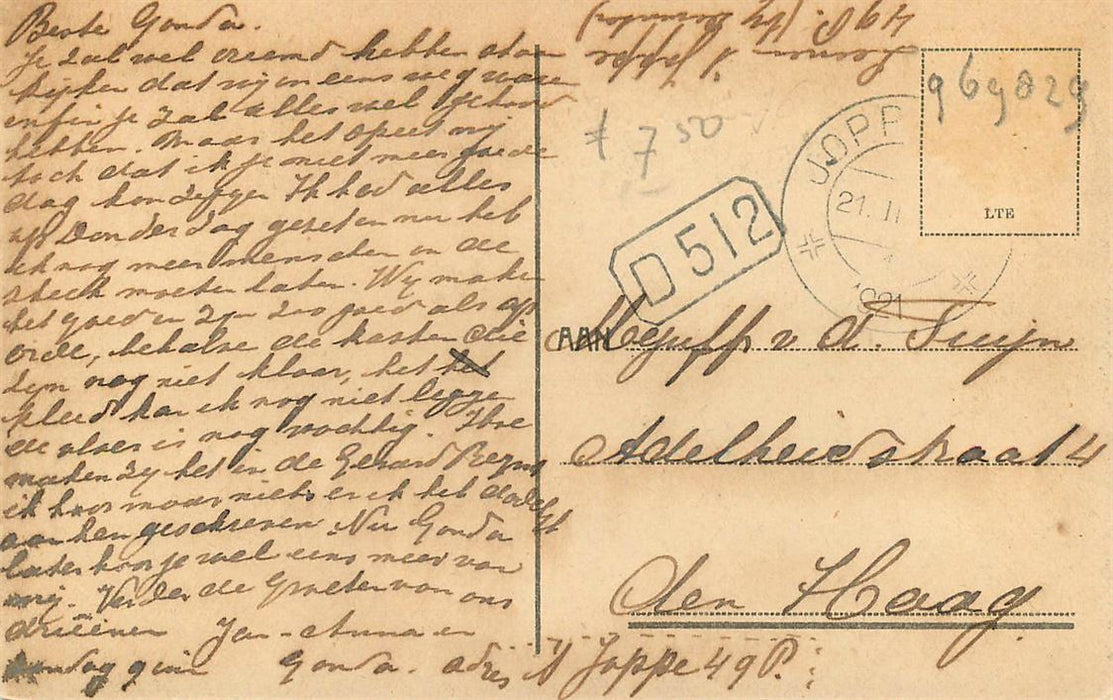 Beste Gonda.
Je zal wel vreemd hebben staan
kijken dat wij in eens weg waren
enfin je zal alles wel gehoord
hebben. Maar het speet mij
toch dat ik je niet meer goede
dag kon zeggen. Ik had alles
op Donderdag gezet en nu heb
ik nog meer menschen in de
steek moeten laten. Wij maken
het goed en zijn zoo goed als op
orde, behalve de kasten die
zijn nog niet klaar, het
kleed kan ik nog niet leggen
de vloer is nog vochtig. Hoe
maken zij het in de Gerard
ik hoor maar niets en ik heb
aan hen geschreven. Nu Gonda
later hoor je wel eens meer van
mij. Verder de groeten van ons
drieënen Jan - Anna en
Gonda. adres Joppe 49 P.
49 P.
Joppe
£ 7 50
969829
JOPP
21. II
1921
LTE
D 512
AAN Mejuff v. d. Tuijn
Adelheidstraat 4
den Haag